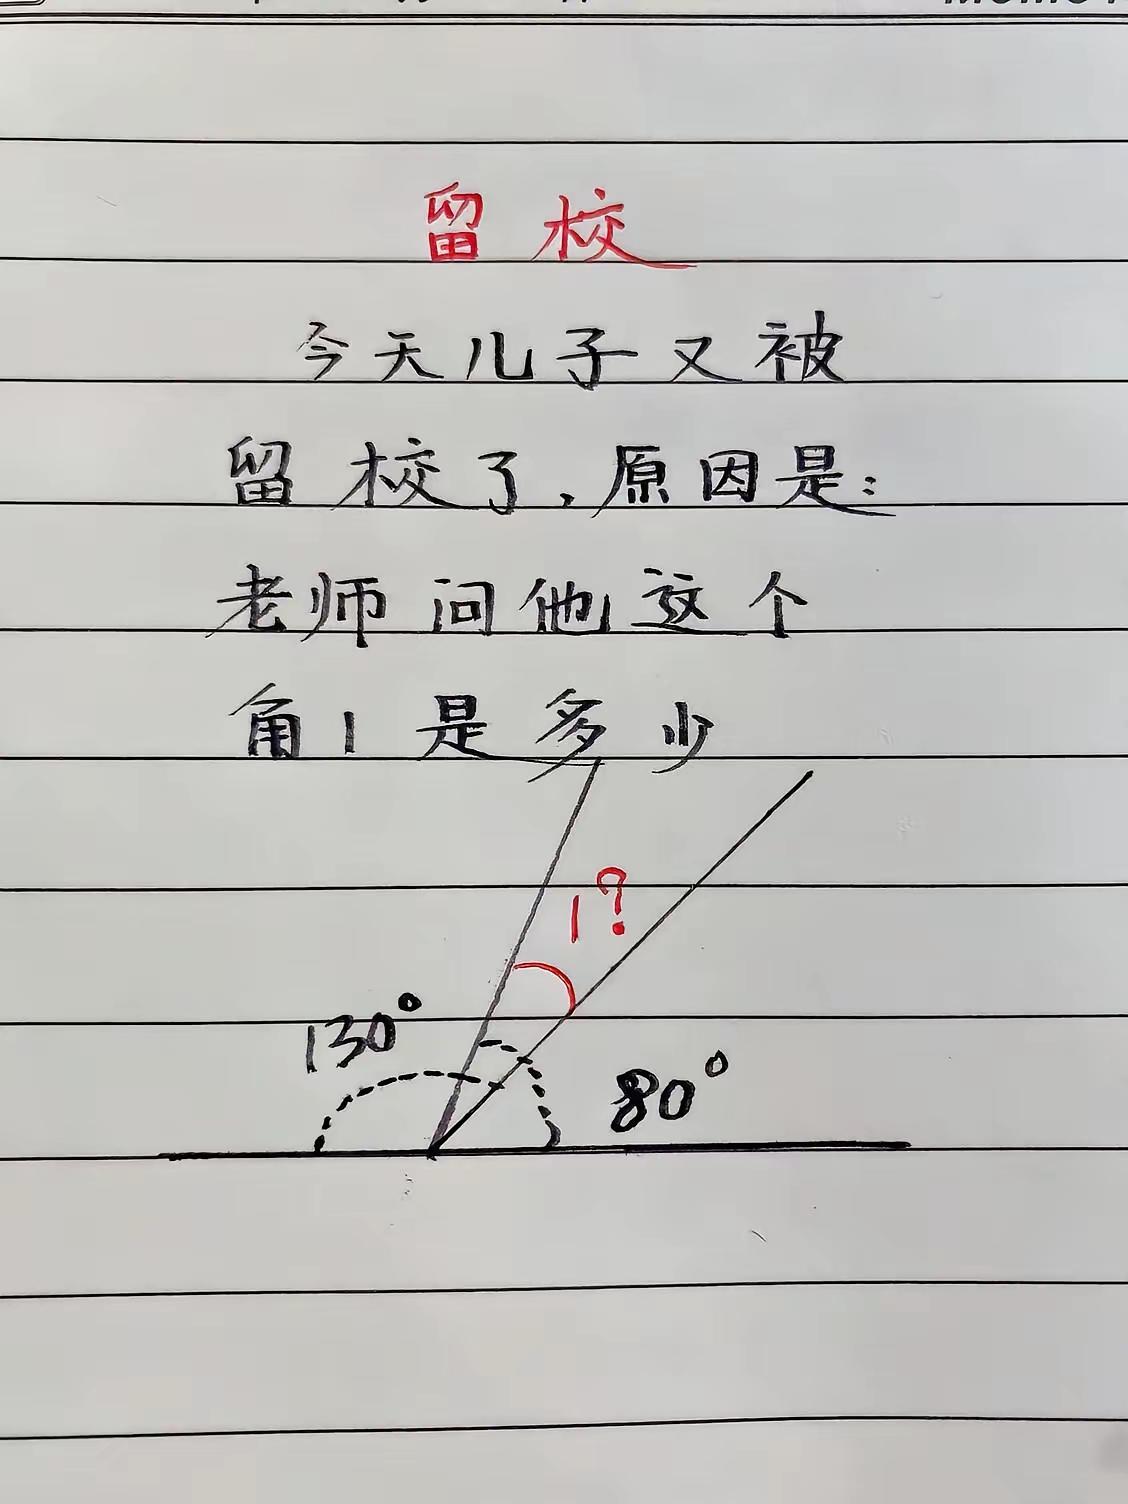 留校
今天儿子又被
留校了,原因是:
老师问他这个
角1是多少
1?
130°
80°